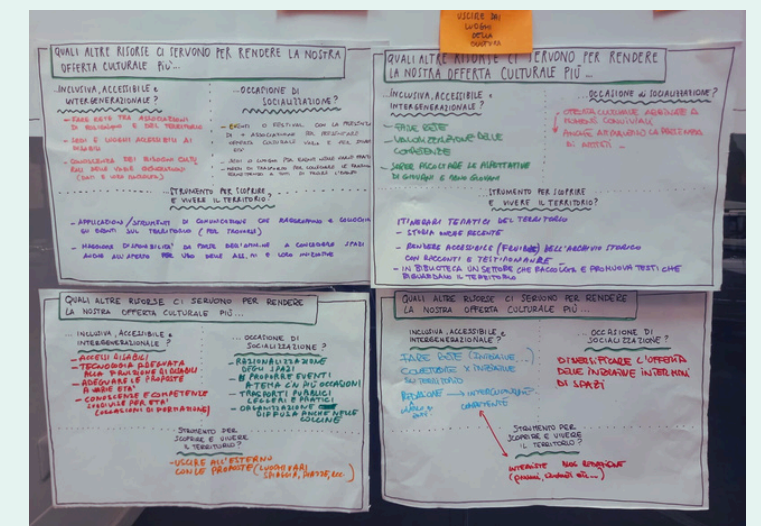 USCIRE DAI
LUOGHI
DELLA
CULTURA
QUALI ALTRE RISORSE CI SERVONO PER RENDERE LA NOSTRA
OFFERTA CULTURALE PIÙ...
...INCLUSIVA, ACCESSIBILE e
INTERGENERAZIONALE?
- FARE RETE TRA ASSOCIAZIONI
E DEL TERRITORIO
- SEDI E LUOGHI ACCESSIBILI AI
DISABILI
- CONOSCENZA DEI BISOGNI CULTU
RALI DELLE VARIE GENERAZIONI
(DATI E LORO ANALISI)
...OCCASIONE DI
SOCIALIZZAZIONE?
- EVENTI O FESTIVAL CON LA PRESENZA
DI + ASSOCIAZIONI PER PRESENTARE
OFFERTA CULTURALE VARIA E PER
- SEDI O LUOGHI PER EVENTI
- MEZZI DI TRASPORTO PER
...STRUMENTO PER SCOPRIRE
E VIVERE IL TERRITORIO?
- APPLICAZIONI/STRUMENTI DI COMUNICAZIONE CHE RAGGRUPPINO E
GLI EVENTI SUL TERRITORIO (PER TROVARSI)
- MAGGIORE DISPONIBILITÀ DA PARTE DELL'AMM.NE A CONCEDERE SPAZI
ANCHE ALL'APERTO PER USO DELLE ASS.NI E LORO INIZIATIVE
QUALI ALTRE RISORSE CI SERVONO PER RENDERE
LA NOSTRA OFFERTA CULTURALE PIÙ...
...INCLUSIVA, ACCESSIBILE e
INTERGENERAZIONALE?
- FARE RETE
- VALORIZZAZIONE DELLE
COMPETENZE
- SAPER ASCOLTARE LE ASPETTATIVE
DI GIOVANI E MENO GIOVANI
...OCCASIONE di SOCIALIZZAZIONE?
- OFFERTA CULTURALE ABBINATA A
MOMENTI CONVIVIALI
ANCHE ATTRAVERSO LA PRESENZA
DI ARTISTI
...STRUMENTO PER SCOPRIRE
E VIVERE IL TERRITORIO?
ITINERARI TEMATICI DEL TERRITORIO
- STORIA ANCHE RECENTE
- RENDERE ACCESSIBILE (FRUIBILE) DELL'ARCHIVIO STORICO
CON RACCONTI E TESTIMONIANZE
- IN BIBLIOTECA UN SETTORE CHE RACCOLGA E PROMUOVA TESTI CHE
RIGUARDANO IL TERRITORIO
QUALI ALTRE RISORSE CI SERVONO PER RENDERE
LA NOSTRA OFFERTA CULTURALE PIÙ...
...INCLUSIVA, ACCESSIBILE e
INTERGENERAZIONALE?
- ACCESSI DISABILI
- TECNOLOGIA ADEGUATA
ALLA FRUIZIONE DI DISABILI
- ADEGUARE LE PROPOSTE
A VARIE ETÀ
- CONOSCENZE E COMPETENZE
PER ETÀ
(OCCASIONI DI FORMAZIONE)
...OCCASIONE DI
SOCIALIZZAZIONE?
- RAZIONALIZZAZIONE
DEGLI SPAZI
- PROPORRE EVENTI
A TEMA C/N PIÙ OCCASIONI
- TRASPORTI PUBBLICI
LEGGERI E PRATICI
- ORGANIZZAZIONE
DIFFUSA ANCHE NELLE
COLLINE
...STRUMENTO PER
SCOPRIRE E VIVERE
IL TERRITORIO?
- USCIRE ALL'ESTERNO
CON LE PROPOSTE (LUOGHI VARI
SPIAGGIA, PIAZZE, ecc.
QUALI ALTRE RISORSE CI SERVONO PER RENDERE
LA NOSTRA OFFERTA CULTURALE PIÙ...
INCLUSIVA, ACCESSIBILE e
INTERGENERAZIONALE?
FARE RETE
X INIZIATIVE
REDAZIONE
COMPETENTE
...OCCASIONE DI
SOCIALIZZAZIONE?
DIVERSIFICARE L'OFFERTA
DELLE INIZIATIVE IN TERMINI
DI SPAZI
STRUMENTO PER
SCOPRIRE E VIVERE
IL TERRITORIO?
REDAZIONE